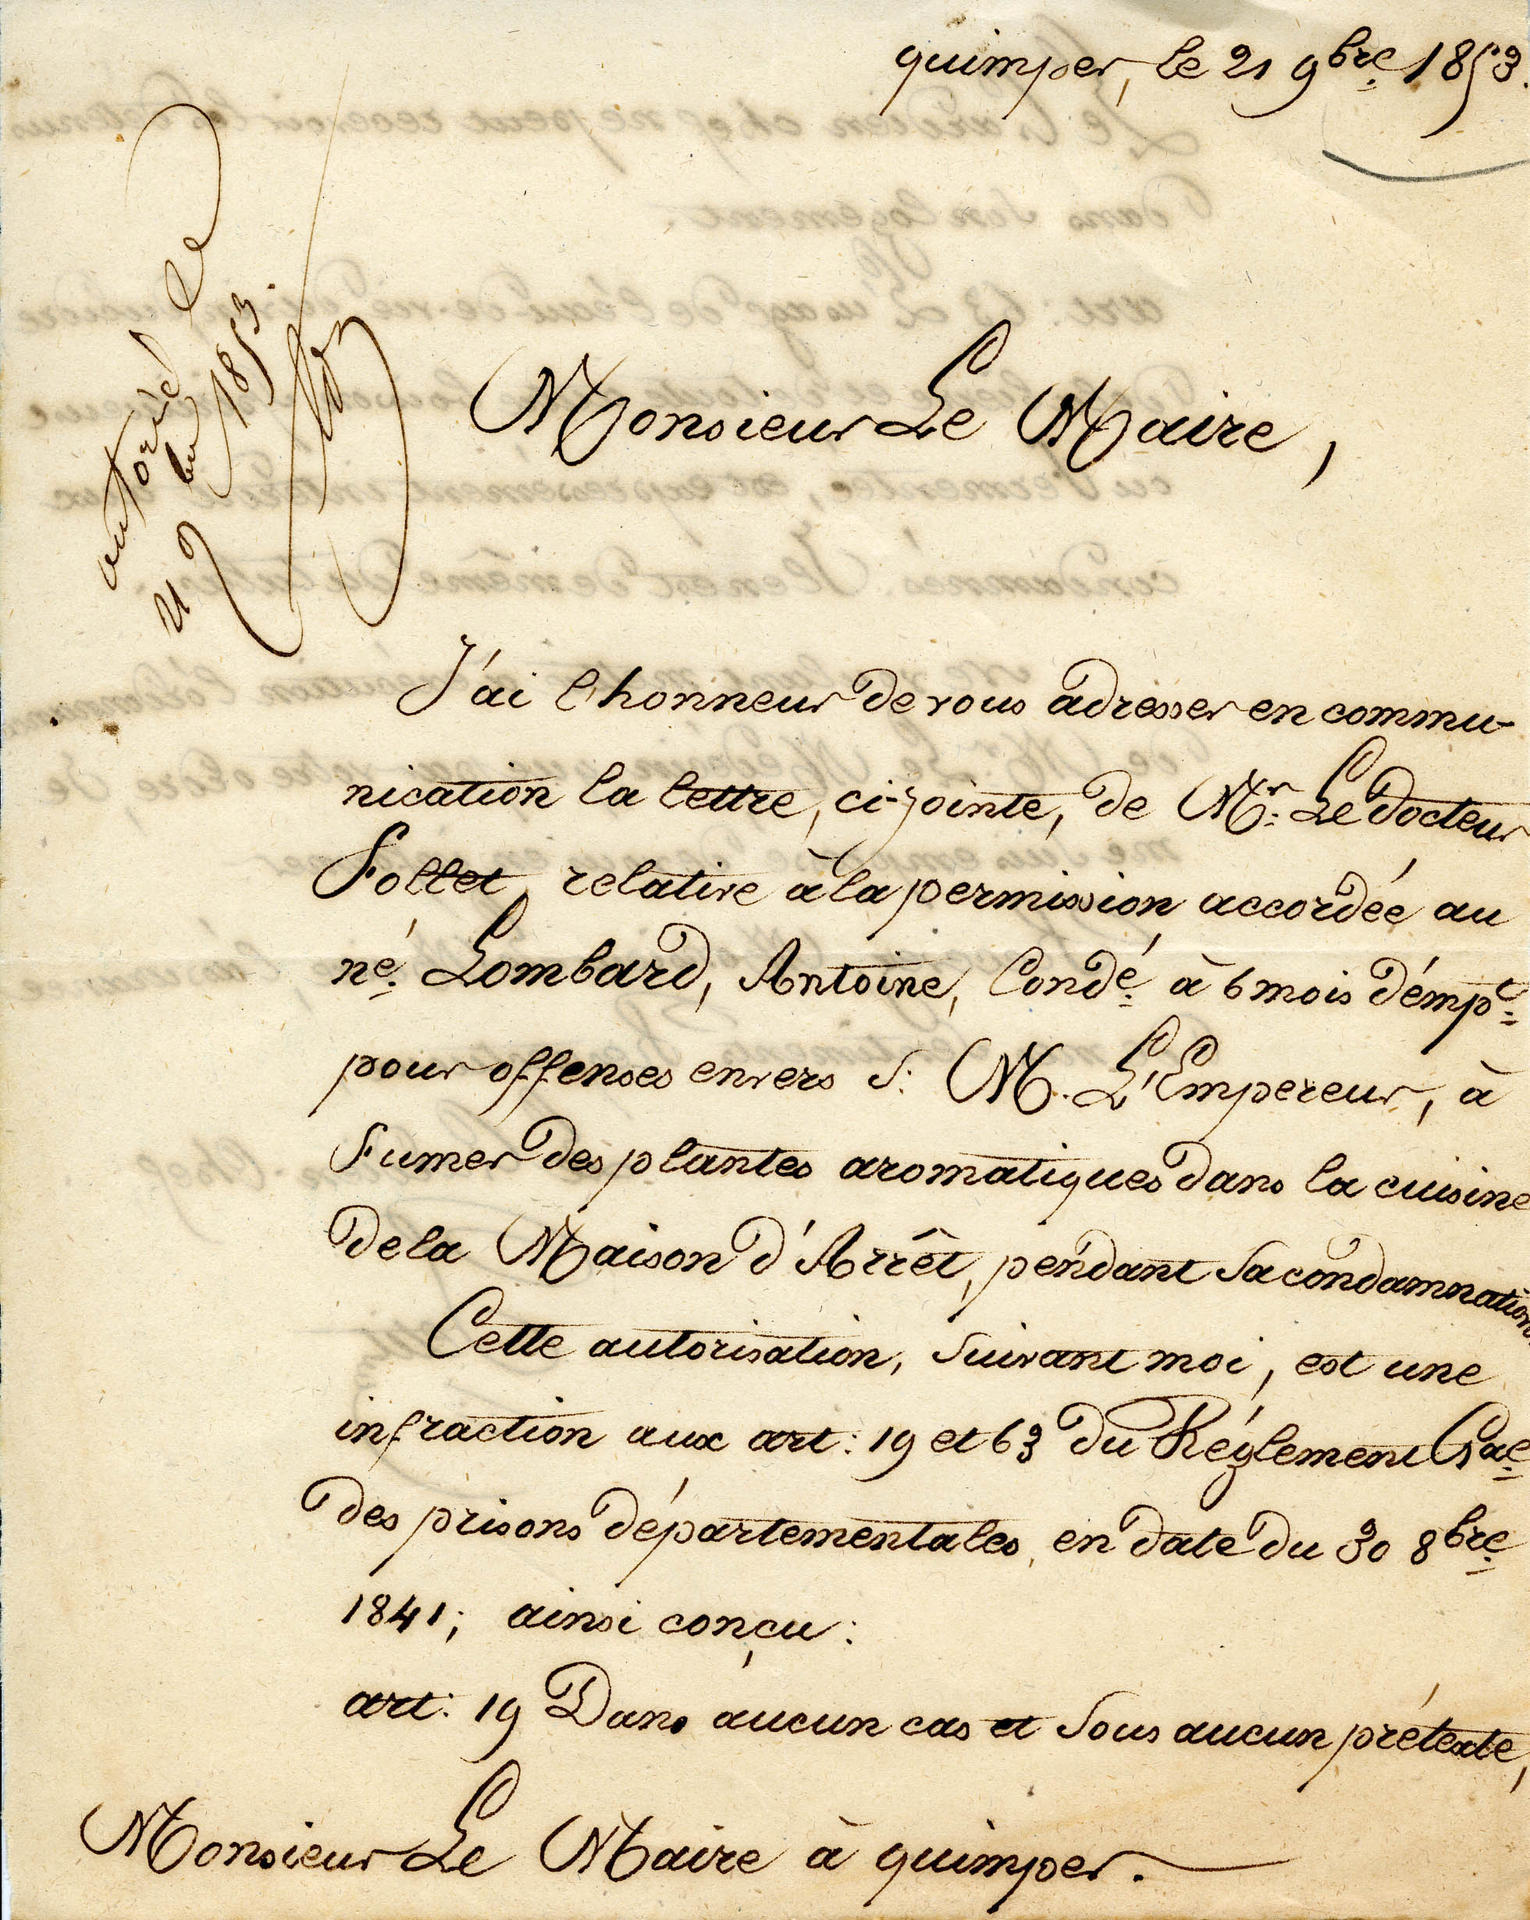 quimper, le 21 9bre 1853.
autorisé le
21 9bre 1853.
Monsieur Le Maire,
J'ai l'honneur de vous adresser en commu-
nication la lettre, ci-jointe, de Mr. Le docteur
Follet, relative à la permission accordée au
né. Lombard, Antoine, Condé. à 6 mois d'empt.
pour offenses envers S. M. L'Empereur, à
fumer des plantes aromatiques dans la cuisine
de la Maison d'Arrêt, pendant sa condamnation
Cette autorisation, suivant moi, est une
infraction aux art: 19 et 63 du Réglement Gal.
des prisons départementales, en date du 30 8bre
1841; ainsi conçu:
art: 19 Dans aucun cas et sous aucun prétexte,
Monsieur Le Maire à quimper.